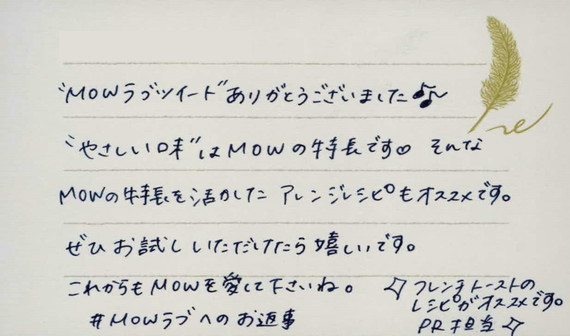 “MOWラブツイート”ありがとうございました♫
“やさしい味”はMOWの特長です♡ そんな
MOWの特長を活かした アレンジレシピもオススメです。
ぜひお試しいただけたら嬉しいです。
これからもMOWを愛して下さいね。
#MOWラブへのお返事
フレンチトーストの
レシピがオススメです。
PR担当